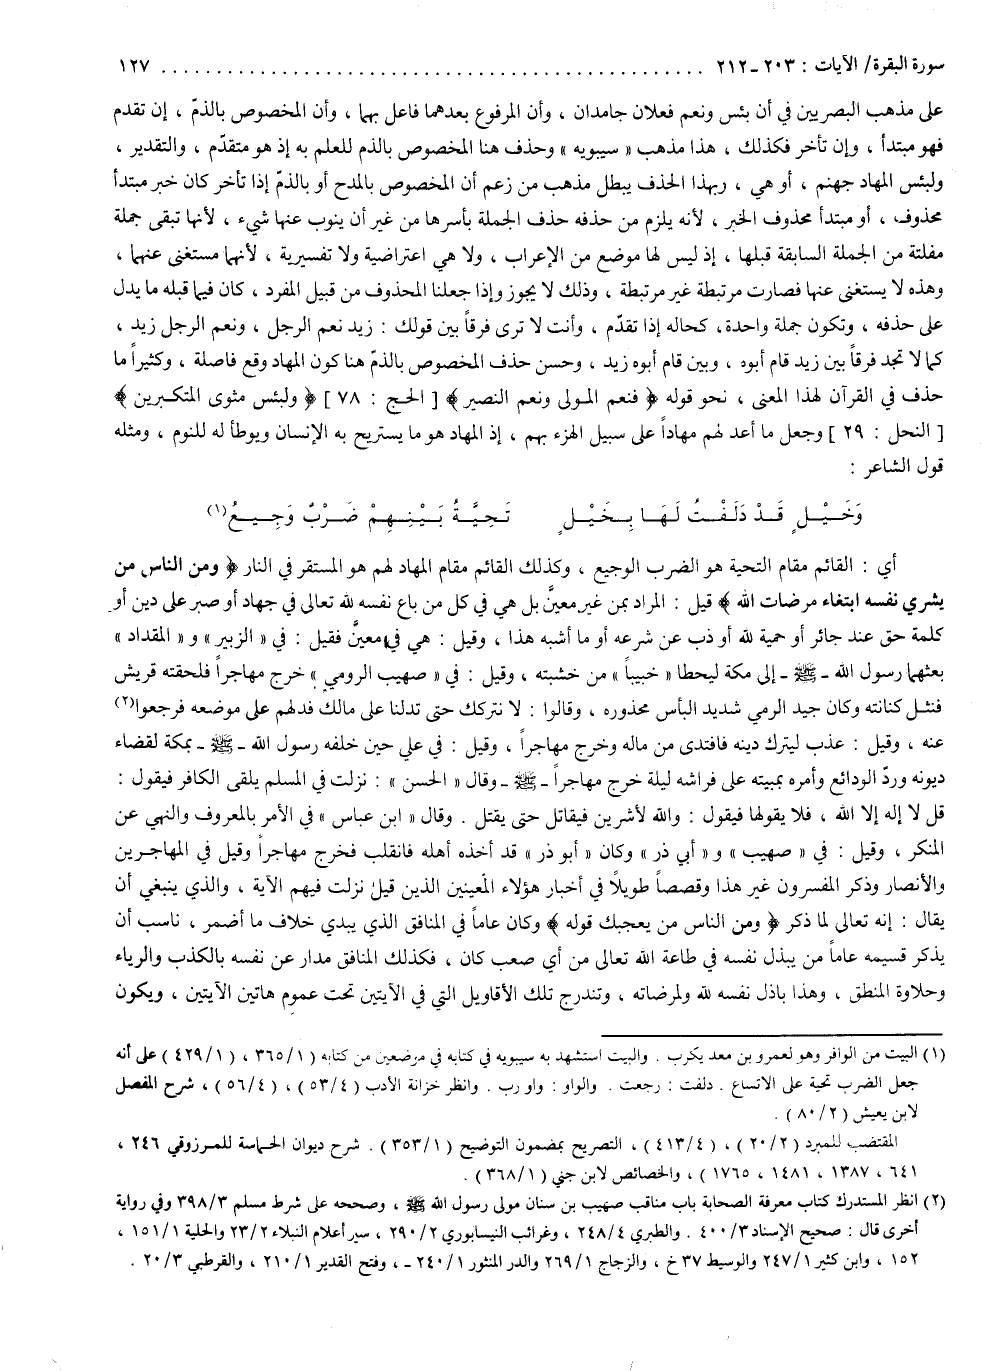 سورة البقرة/ الآيات : ٢٠٣ ـ ٢١٢ ................................................ ١٢٧
على مذهب البصريين في أن بئس ونعم فعلان جامدان ، وأن المرفوع بعدهما فاعل بهما ، وأن المخصوص بالذمّ ، إن تقدم
فهو مبتدأ ، وإن تأخر فكذلك ، هذا مذهب « سيبويه » وحذف هنا المخصوص بالذم للعلم به إذ هو متقدّم ، والتقدير ،
ولبئس المهاد جهنم ، أو هي ، ربهذا الحذف يبطل مذهب من زعم أن المخصوص بالمدح أو بالذمّ إذا تأخر كان خبر مبتدأ
محذوف ، أو مبتدأ محذوف الخبر ، لأنه يلزم من حذفه حذف الجملة بأسرها من غير أن ينوب عنها شيء ، لأنها تبقى جملة
مفلتة من الجملة السابقة قبلها ، إذ ليس لها موضع من الإعراب ، ولا هي اعتراضية ولا تفسيرية ، لأنهما مستغنى عنهما ،
وهذه لا يستغنى عنها فصارت مرتبطة غير مرتبطة ، وذلك لا يجوز وإذا جعلنا المحذوف من قبيل المفرد ، كان فيما قبله ما يدل
على حذفه ، وتكون جملة واحدة، كحاله إذا تقدّم ، وأنت لا ترى فرقاً بين قولك : زيد نعم الرجل ، ونعم الرجل زيد ،
كما لا تجد فرقاً بين زيد قام أبوه ، وبين قام أبوه زيد ، وحسن حذف المخصوص بالذمّ هنا كون المهاد وقع فاصلة ، وكثيراً ما
حذف في القرآن لهذا المعنى ، نحو قوله ﴿ فنعم المولى ونعم النصير ﴾ [ الحج : ٧٨ ] ﴿ ولبئس مثوى المتكبرين ﴾
[ النحل : ٢٩ ] وجعل ما أعد لهم مهاداً على سبيل الهزء بهم ، إذ المهاد هو ما يستريح به الإنسان ويوطأ له للنوم ، ومثله
قول الشاعر :
وَخَيْلٍ قَدْ دَلَفْتُ لَهَا بِخَيْلٍ تَحِيَّةُ بَيْنِهِمْ ضَرْبٌ وَجِيعُ(١)
أي : القائم مقام التحية هو الضرب الوجيع ، وكذلك القائم مقام المهاد لهم هو المستقر في النار ﴿ ومن الناس من
يشري نفسه ابتغاء مرضات الله ﴾ قيل : المراد بمن غير معينّ بل هي في كل من باع نفسه لله تعالى في جهاد أو صبر على دين أو
كلمة حق عند جائر أو حمية لله أو ذب عن شرعه أو ما أشبه هذا ، وقيل : هي في معينّ فقيل : في « الزبير » و « المقداد »
بعثهما رسول الله ـ ﷺ ـ إلى مكة ليحطا « خبيباً » من خشبته ، وقيل : في « صهيب الرومي » خرج مهاجراً فلحقته قريش
فنثل كنانته وكان جيد الرمي شديد البأس محذوره ، وقالوا : لا نتركك حتى تدلنا على مالك فدلهم على موضعه فرجعوا(٢)
عنه ، وقيل : عذب ليترك دينه فافتدى من ماله وخرج مهاجراً ، وقيل : في علي حين خلفه رسول الله ـ ﷺ ـ بمكة لقضاء
ديونه وردّ الودائع وأمره بمبيته على فراشه ليلة خرج مهاجراً ـ ﷺ ـ وقال « الحسن » : نزلت في المسلم يلقى الكافر فيقول :
قل لا إله إلا الله ، فلا يقولها فيقول : والله لأشرين فيقاتل حتى يقتل . وقال « ابن عباس » في الأمر بالمعروف والنهي عن
المنكر ، وقيل : في « صهيب » و « أبي ذر » وكان « أبو ذر » قد أخذه أهله فانقلب فخرج مهاجراً وقيل في المهاجرين
والأنصار وذكر المفسرون غير هذا وقصصاً طويلاً في أخبار هؤلاء المعينين الذين قيل نزلت فيهم الآية ، والذي ينبغي أن
يقال : إنه تعالى لما ذكر ﴿ ومن الناس من يعجبك قوله ﴾ وكان عاماً في المنافق الذي يبدي خلاف ما أضمر ، ناسب أن
يذكر قسيمه عاماً من يبذل نفسه في طاعة الله تعالى من أي صعب كان ، فكذلك المنافق مدار عن نفسه بالكذب والرياء
وحلاوة المنطق ، وهذا باذل نفسه لله ولمرضاته ، وتندرج تلك الأقاويل التي في الآيتين تحت عموم هاتين الآيتين ، ويكون
(١) البيت من الوافر وهو لعمرو بن معد يكرب . والبيت استشهد به سيبويه في كتابه في مرضعين من كتابه ( ٣٦٥/١ ، ( ٤٢٩/١ ) على أنه
جعل الضرب تحية على الاتساع . دلفت : رجعت . والواو : واو رب . وانظر خزانة الأدب ( ٥٣/٤ ) ، ( ٥٦/٤ ) ، شرح المفصل
لابن يعيش ( ٨٠/٢ ) .
المقتضب للمبرد ( ٢٠/٢ ) ، ( ٤١٣/٤ ) ، التصريح بمضمون التوضيح ( ٣٥٣/١ ) . شرح ديوان الحماسة للمرزوقي ٢٤٦ ،
٦٤١ ، ١٣٨٧ ، ١٤٨١ ، ١٧٦٥ ) ، والخصائص لابن جني ( ٣٦٨/١ ) .
(٢) انظر المستدرك كتاب معرفة الصحابة باب مناقب صهيب بن سنان مولى رسول الله ﷺ ، وصححه على شرط مسلم ٣٩٨/٣ وفي رواية
أخرى قال : صحيح الإسناد ٤٠٠/٣ . والطبري ٢٤٨/٤ ، وغرائب النيسابوري ٢٩٠/٢ ، سير أعلام النبلاء ٢٣/٢ والحلية ١٥١/١ ،
١٥٢ ، وابن كثير ٢٤٧/١ والوسيط ٣٧ خ ، والزجاج ٢٦٩/١ والدر المنثور ٢٤٠/١ ـ ، وفتح القدير ٢١٠/١ ، والقرطبي ٢٠/٣ .